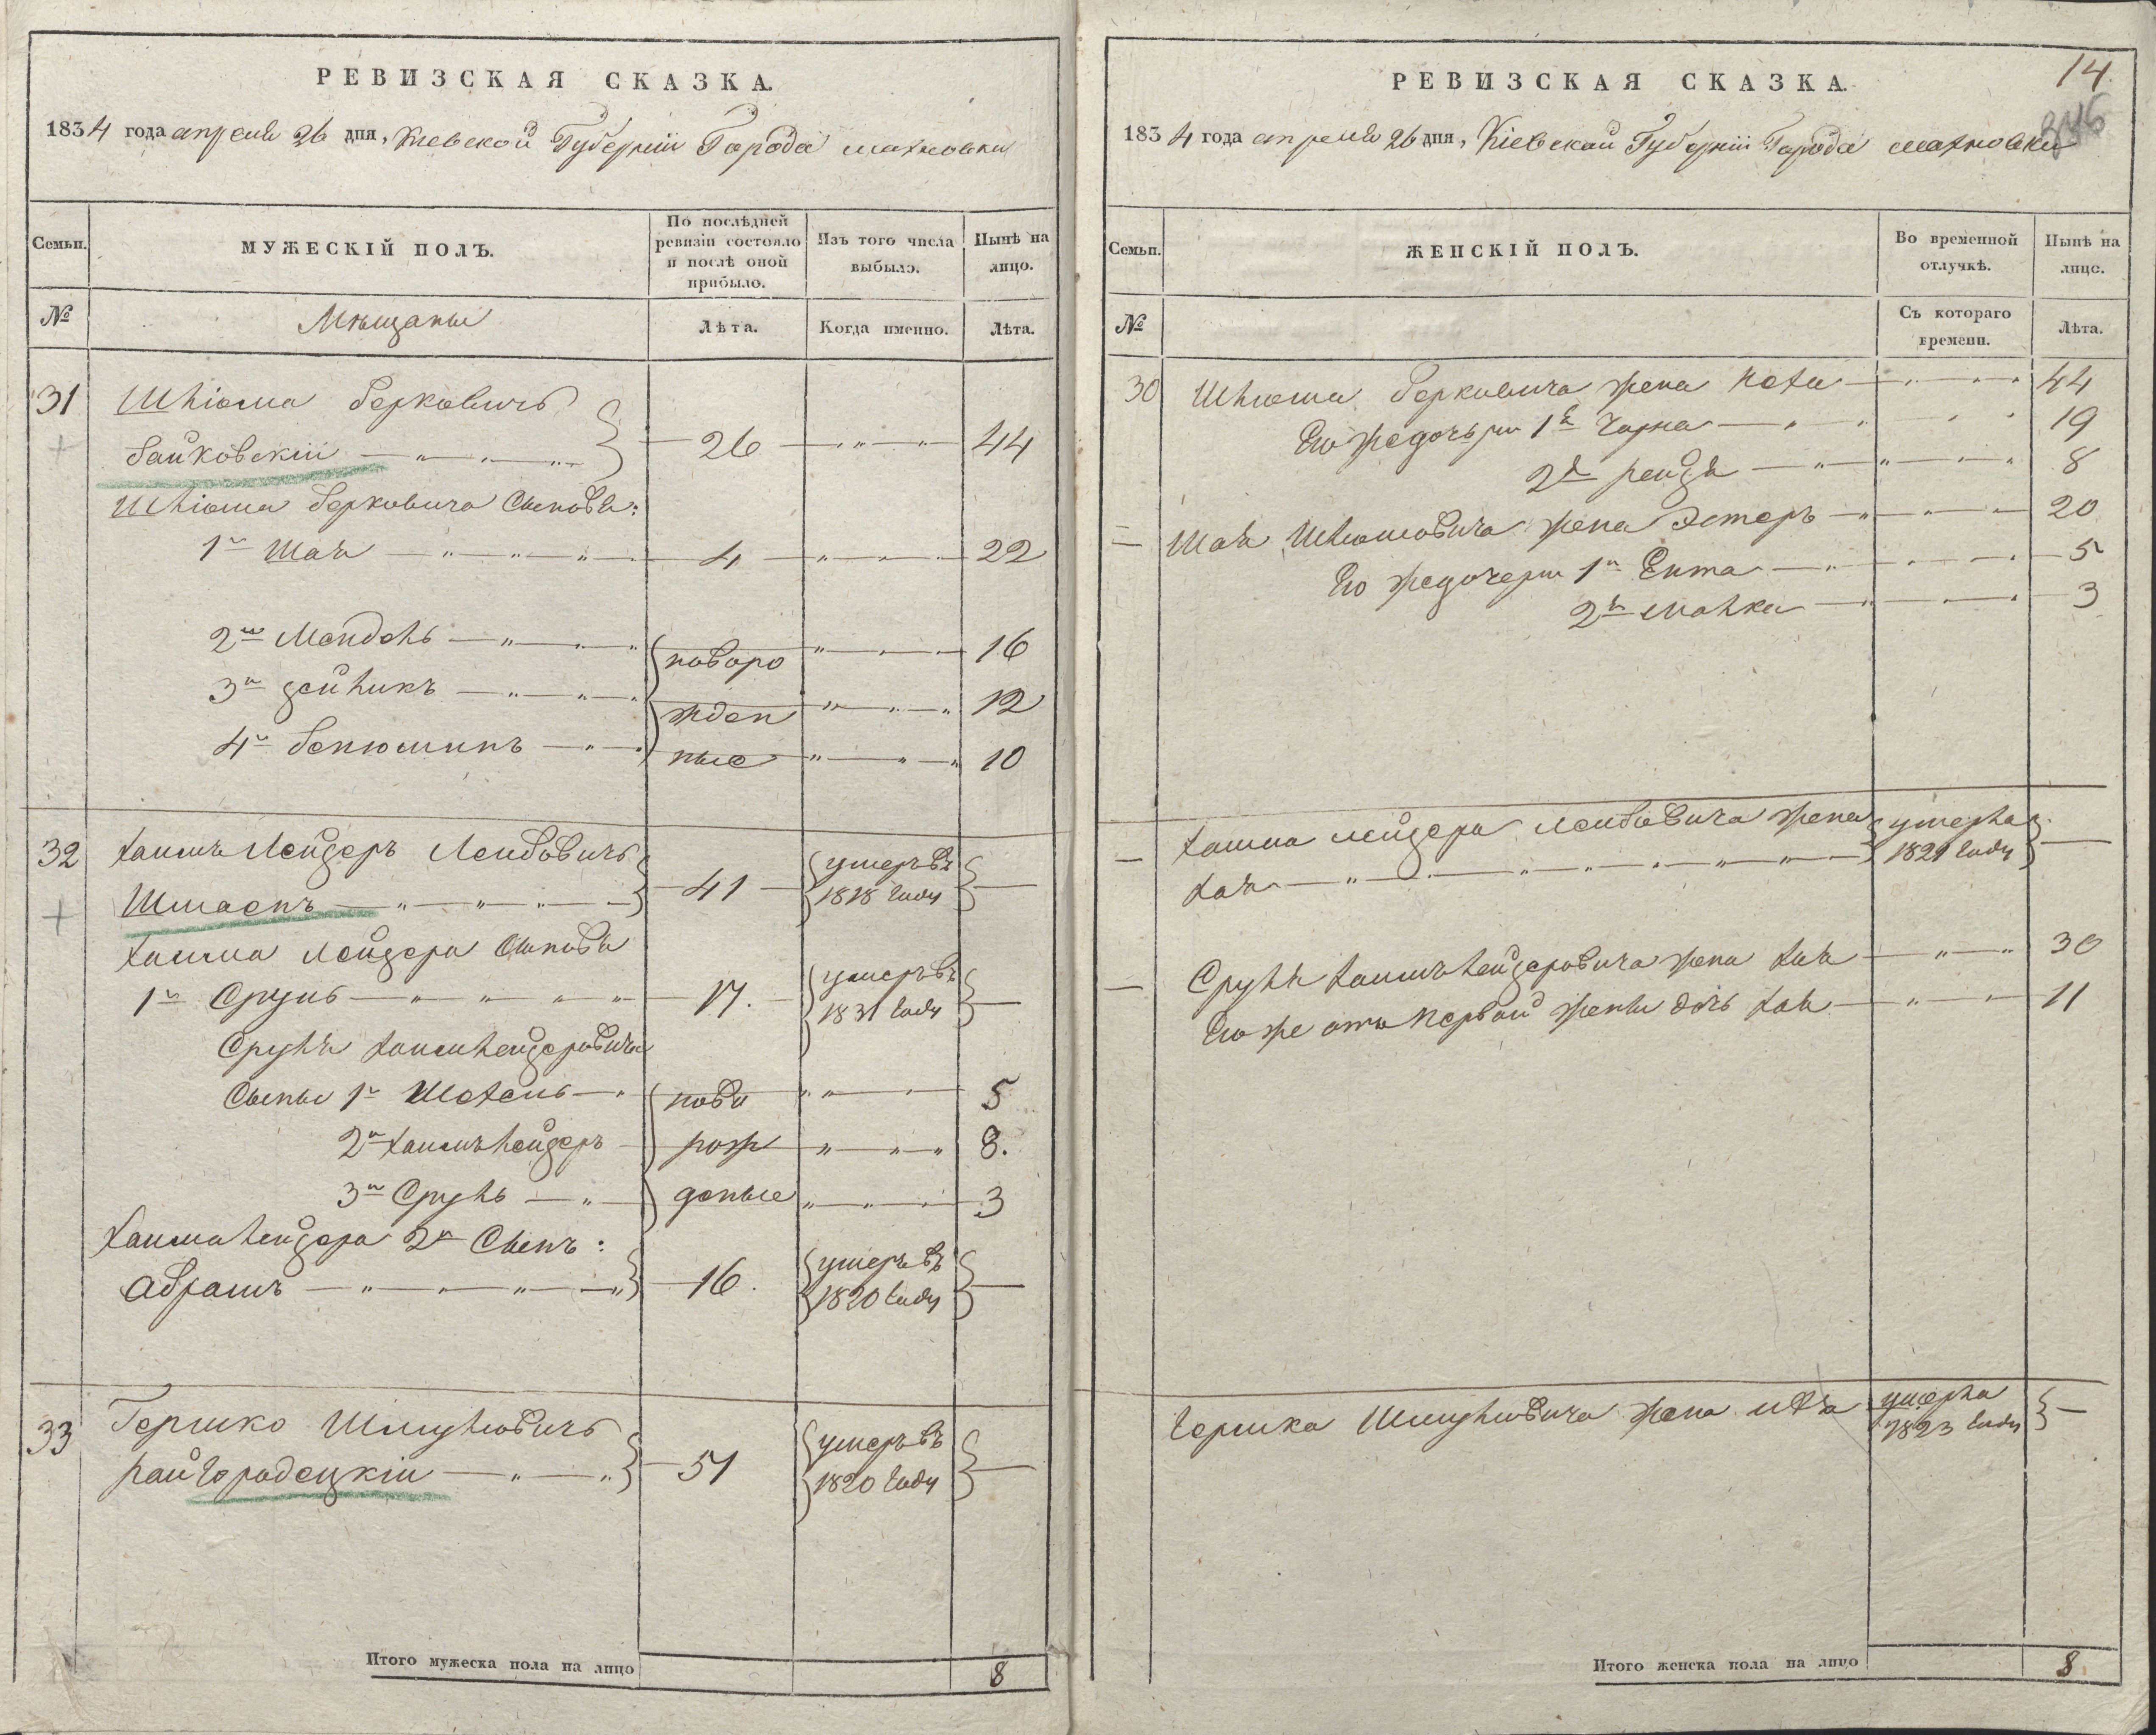 РЕВИЗСКАЯ СКАЗКА.
1834 года апреля 26 дня, Киевской Губернии Города Махновки
Семьи.
МУЖЕСКІЙ ПОЛЪ.
По послѣдней
ревизіи состояло
и послѣ оной
прибыло.
Изъ того числа
выбыло.
Нынѣ на
лицо.
№
Мѣщаны
Лѣта.
Когда именно.
Лѣта.
31 Шліома Берковичъ
Байковскій 26 44
Шліома Берковича Сынови:
1й Шая 4 22
2й Мендель новоро 16
3й Зейликъ жден 12
4й Бенюминъ ные 10
32 Хаимъ Лейзеръ Лейбовичъ умеръ въ
Шмаенъ 41 1818 году
Хаима Лейзера Сынови
1й Сруль 17. умеръ въ
1831 году
Сруля Хаимлейзеровича
Сыны 1й Шохель ново 5
2й Хаимълейзеръ рож 8.
3й Сруль деные 3
Хаима лейзера 2й Сынъ:
Абрамъ 16. умеръ въ
1820 году
33 Гершко Шмулёвичъ умеръ въ
Райгородецкій 51 1820 году
Итого мужеска пола на лицо 8
14
346
РЕВИЗСКАЯ СКАЗКА.
1834 года апреля 26 дня, Кіевской Губерніи Города Махновки
Семьи.
ЖЕНСКІЙ ПОЛЪ.
Во временной
отлучкѣ.
Нынѣ на
лицо.
№
Съ котораго
времени.
Лѣта.
30 Шлиома Берковича жена Неха 44
Его же дочери 1я Чарна 19
2я рейзя 8
Шая Шлиомовича жена Эстеръ 20
Его же дочери 1я Ента 5
2я Малка 3
Хаима Лейзера Лейбовича жена умерла
Хая 1821 году
Сруля Хаимълейзеровича жена Хая 30
Его же отъ Первой жены дочь Хая 11
Гершка Шмулёвича жена умерла
1823 году
Итого женска пола на лицо 8